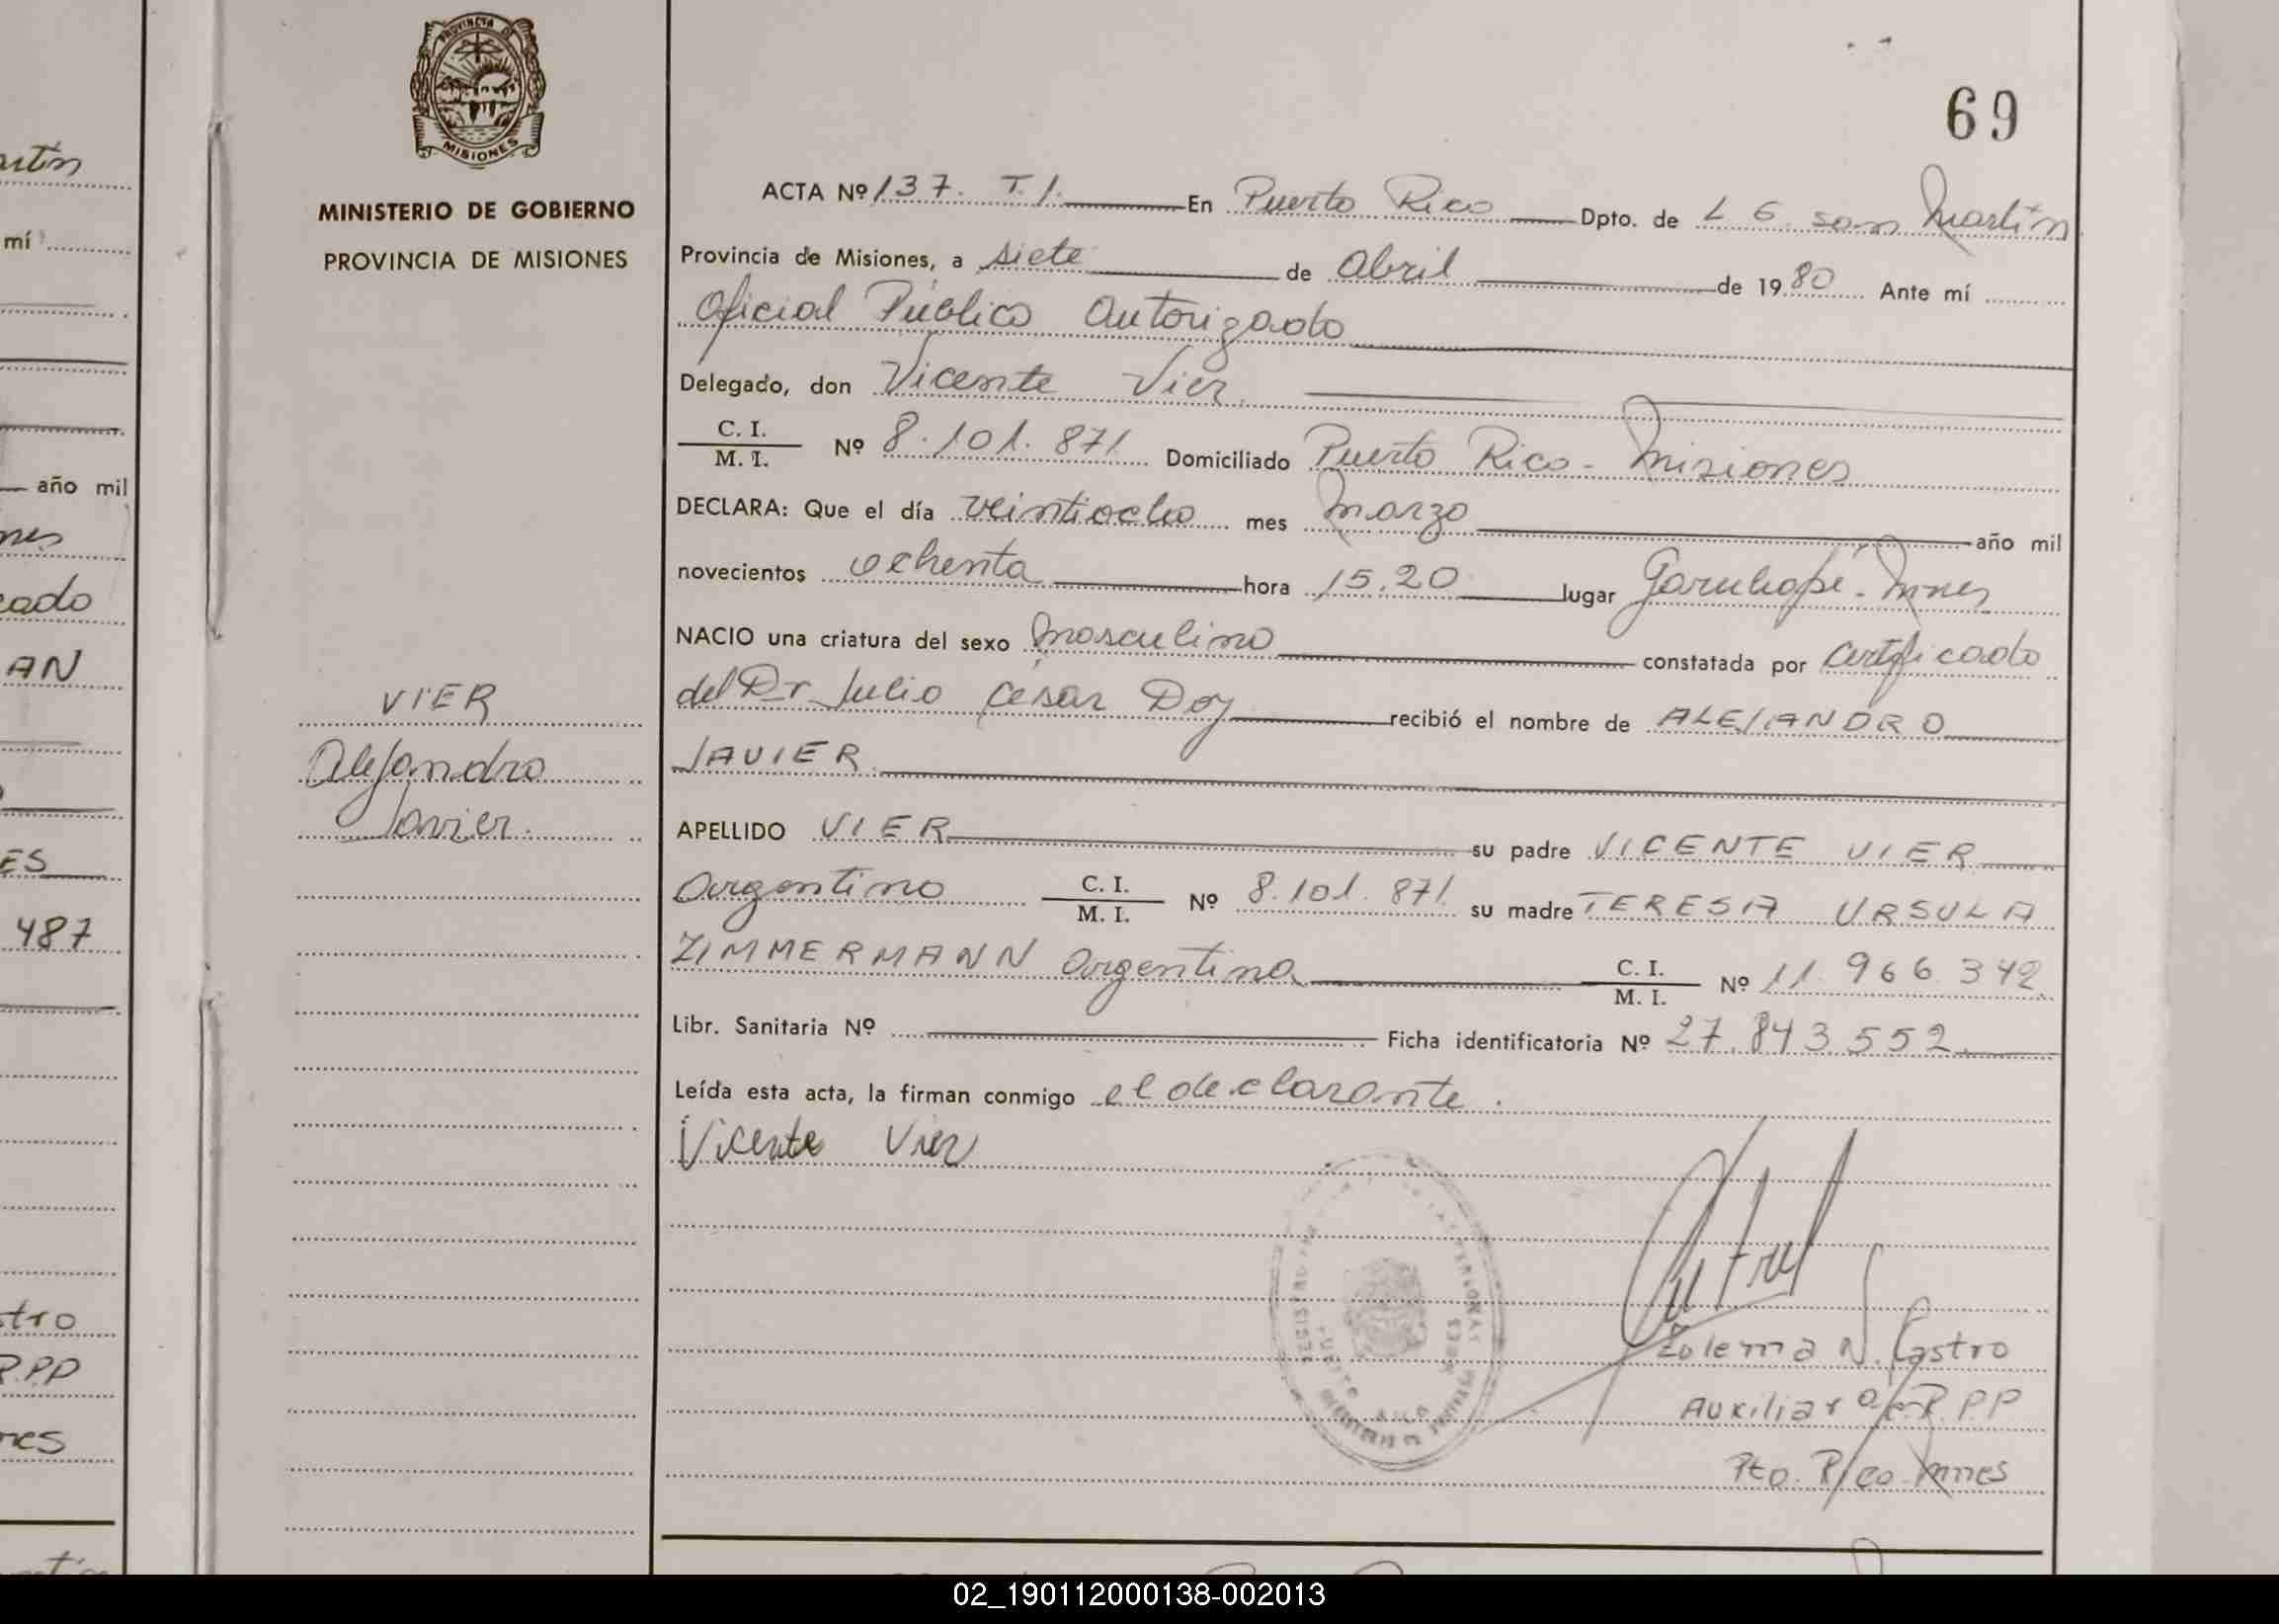 PROVINCIA DE
MISIONES
MINISTERIO DE GOBIERNO
PROVINCIA DE MISIONES
69
ACTA Nº 137. T.I. En Puerto Rico Dpto. de L G. san Martín
Provincia de Misiones, a siete de Abril de 1980 Ante mí
Oficial Público Autorizado
Delegado, don Vicente Vier.
C. I.
M. I.
Nº 8.101.871 Domiciliado Puerto Rico - Misiones
DECLARA: Que el día veintiocho mes Marzo año mil
novecientos ochenta hora 15,20 lugar Garuhapé - Mnes
NACIO una criatura del sexo Masculino constatada por Certificado
del Dr Julio César Doy recibió el nombre de ALEJANDRO
JAVIER
APELLIDO VIER su padre VICENTE VIER
argentino C. I.
M. I.
Nº 8.101.871 su madre TERESA URSULA
ZIMMERMANN argentina C. I.
M. I.
Nº 11.966.342
Libr. Sanitaria Nº Ficha identificatoria Nº 27.843.552
Leída esta acta, la firman conmigo el declarante.
Vicente Vier
Zulema N. Castro
Auxiliar R.P.P
Pto. Rico Mnes
VIER
Alejandro
Javier
mí
año mil
nes
cado
AN
ES
487
tro
R.PP
nes
02_190112000138-002013